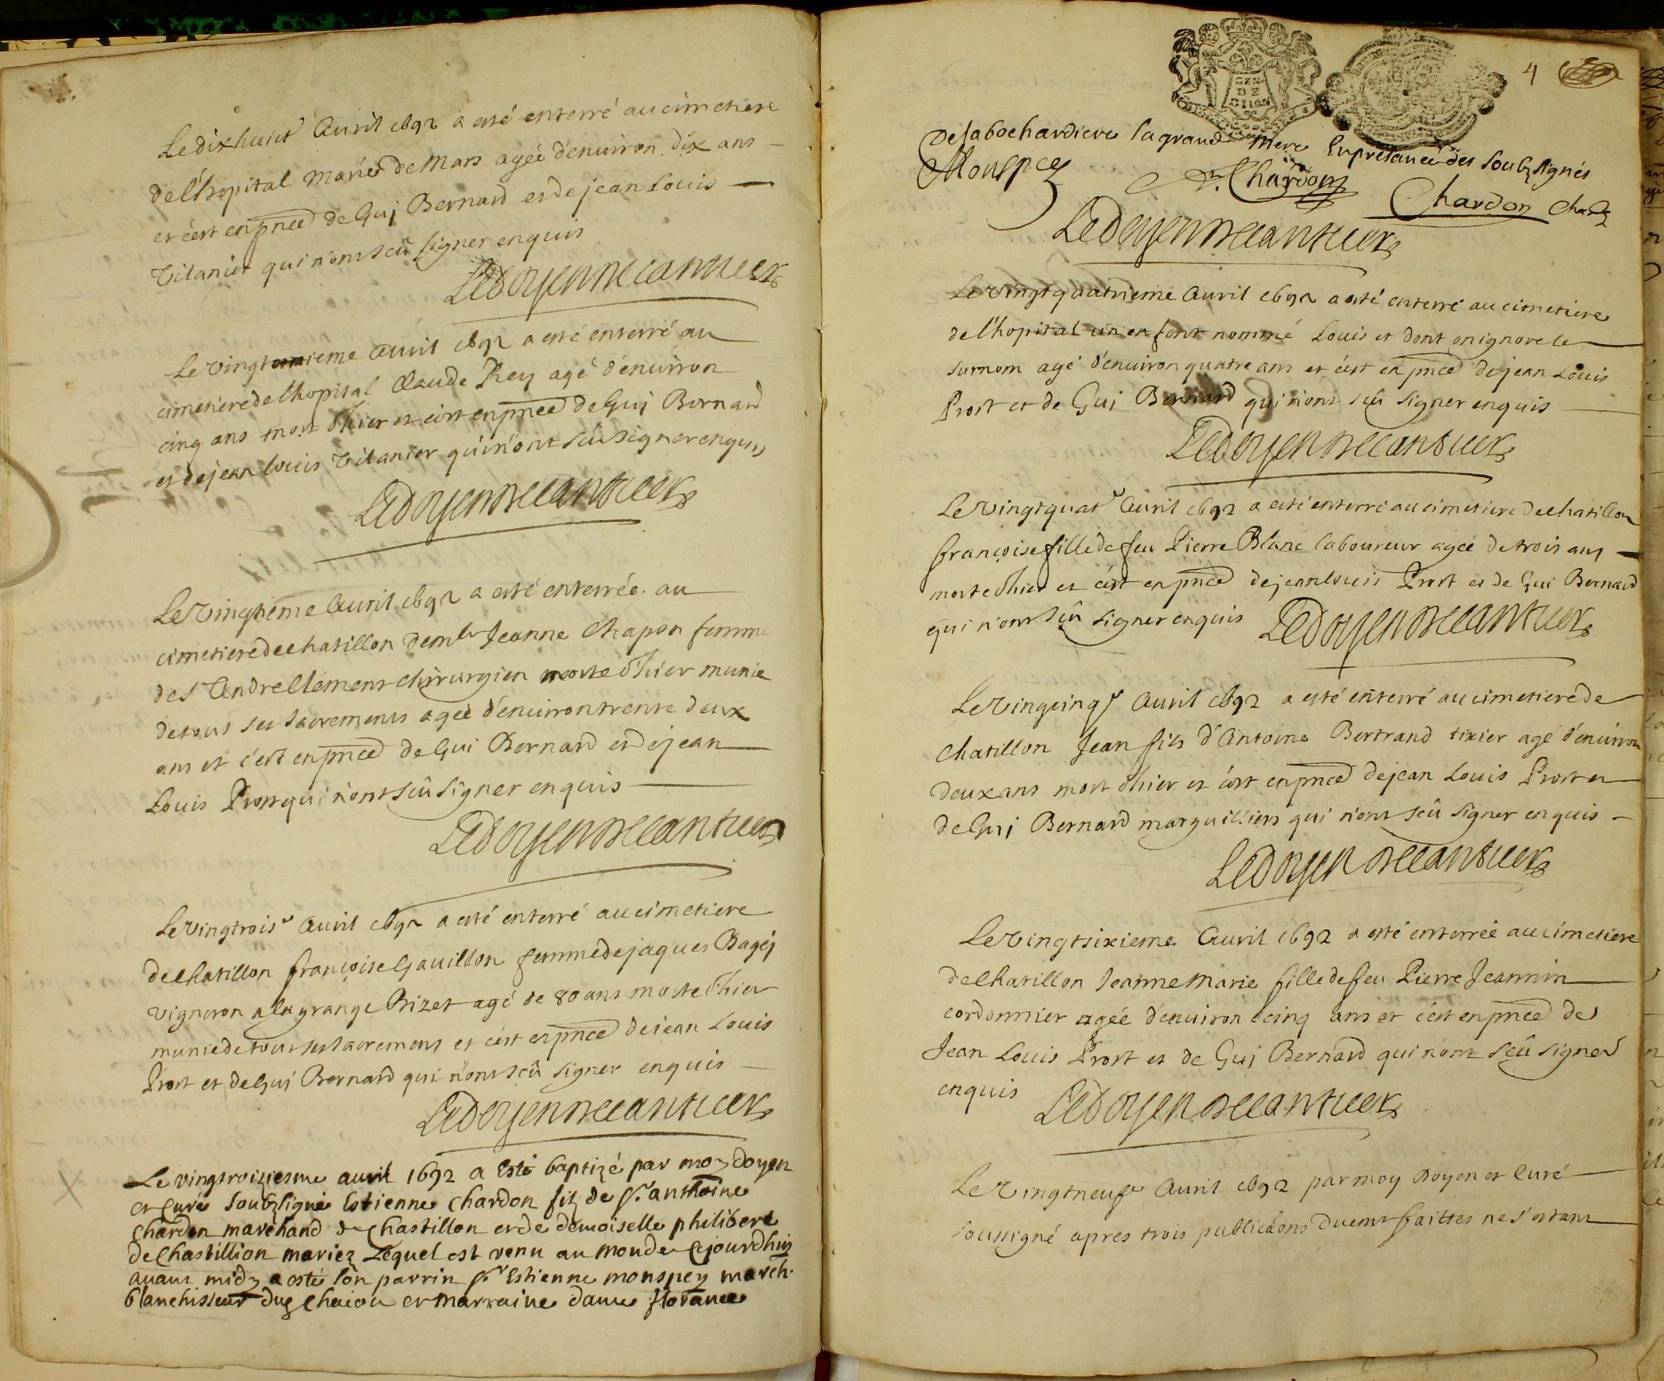 Le dix huict Avril 1692 a esté enterré au cimetiere
de l'hopital Mariée de Mars agée d'environ dix ans
et c'est en pnce de Gui Bernard et de jean Louis
Titanier qui n'ont sçu signer enquis
Ledoyen
Le vingt Avril 1692 a esté enterré au
cimetiere de l'hopital Claude Rey agé d'environ
cinq ans mort d'hier et c'est en pnce de Gui Bernard
et de jean Louis Titanier qui n'ont sçu signer enquis
Ledoyen
Le Vingtieme Avril 1692 a esté enterrée au
cimetiere de chatillon demlle Jeanne Chapon femme
de Sr André Clement chirurgien morte d'hier munie
de tous ses sacremens agée d'environ trente deux
ans et c'est en pnce de Gui Bernard et de jean
Louis Prost qui n'ont sçu signer enquis
Ledoyen
Le vingtroisr Avril 1692 a esté enterré au cimetiere
de chatillon françoise Gavillon femme de jaques Bagéj
vigneron a la grange Bizet agé de 80 ans morte d'hier
munie de tous ses sacremens et c'est en pnce de jean Louis
Prost et de Guj Bernard qui n'ont sçu signer enquis
Ledoyen
Le vingtroiziesme avril 1692 a Esté baptizé par moy doyen
et Curé Soubzsigné Estienne Chardon filz de Sr anthoine
Chardon marchand de Chastillon et de damoiselle philiberte
de Chastillion mariez Lequel est venu au monde cejourdhuy
avant midy a esté son parrin Sr Estienne monspey march.
blanchisseur et marraine dame florance
4
GEN
DE
DIION
De labochardiere la grand mere En présance des Soubzsignés
Monspey
Chardon
Chardon
Ledoyen
Le Vingt quatrieme Avril 1692 a esté enterré au cimetiere
de l'hopital un enfant nommé Louis et dont on ignore le
surnom agé d'environ quatre ans et c'est en pnce de jean Louis
Prost et de Gui Bernard qui n'ont sçû signer enquis
Ledoyen
Le Vingtquatr Avril 1692 a esté enterré au cimetiere de chatillon
françoise fille de feu Pierre Blanc laboureur agée de trois ans
morte d'hier et c'est en pnce de jean louis Prost et de Gui Bernard
qui n'ont sçû signer enquis Ledoyen
Le Vingcinqr Avril 1692 a esté enterré au cimetiere de
Chatillon Jean fils d'Antoine Bertrand tixier agé d'environ
deux ans mort d'hier et c'est en pnce de jean Louis Prost et
de Guj Bernard marguilliers qui n'ont sçû signer enquis
Ledoyen
Le Vingtsixieme Avril 1692 a esté enterrée au cimetiere
de Chatillon Jeanne Marie fille de feu Pierre Jeannin
cordonnier agée d'environ cinq ans et c'est en pnce de
Jean Louis Prost et de Guj Bernard qui n'ont sçû signer
enquis Ledoyen
Le Vingtneufr Avril 1692 par moy Doyen et Curé
soussigné apres trois publicãons duemt faittes ne s'estant